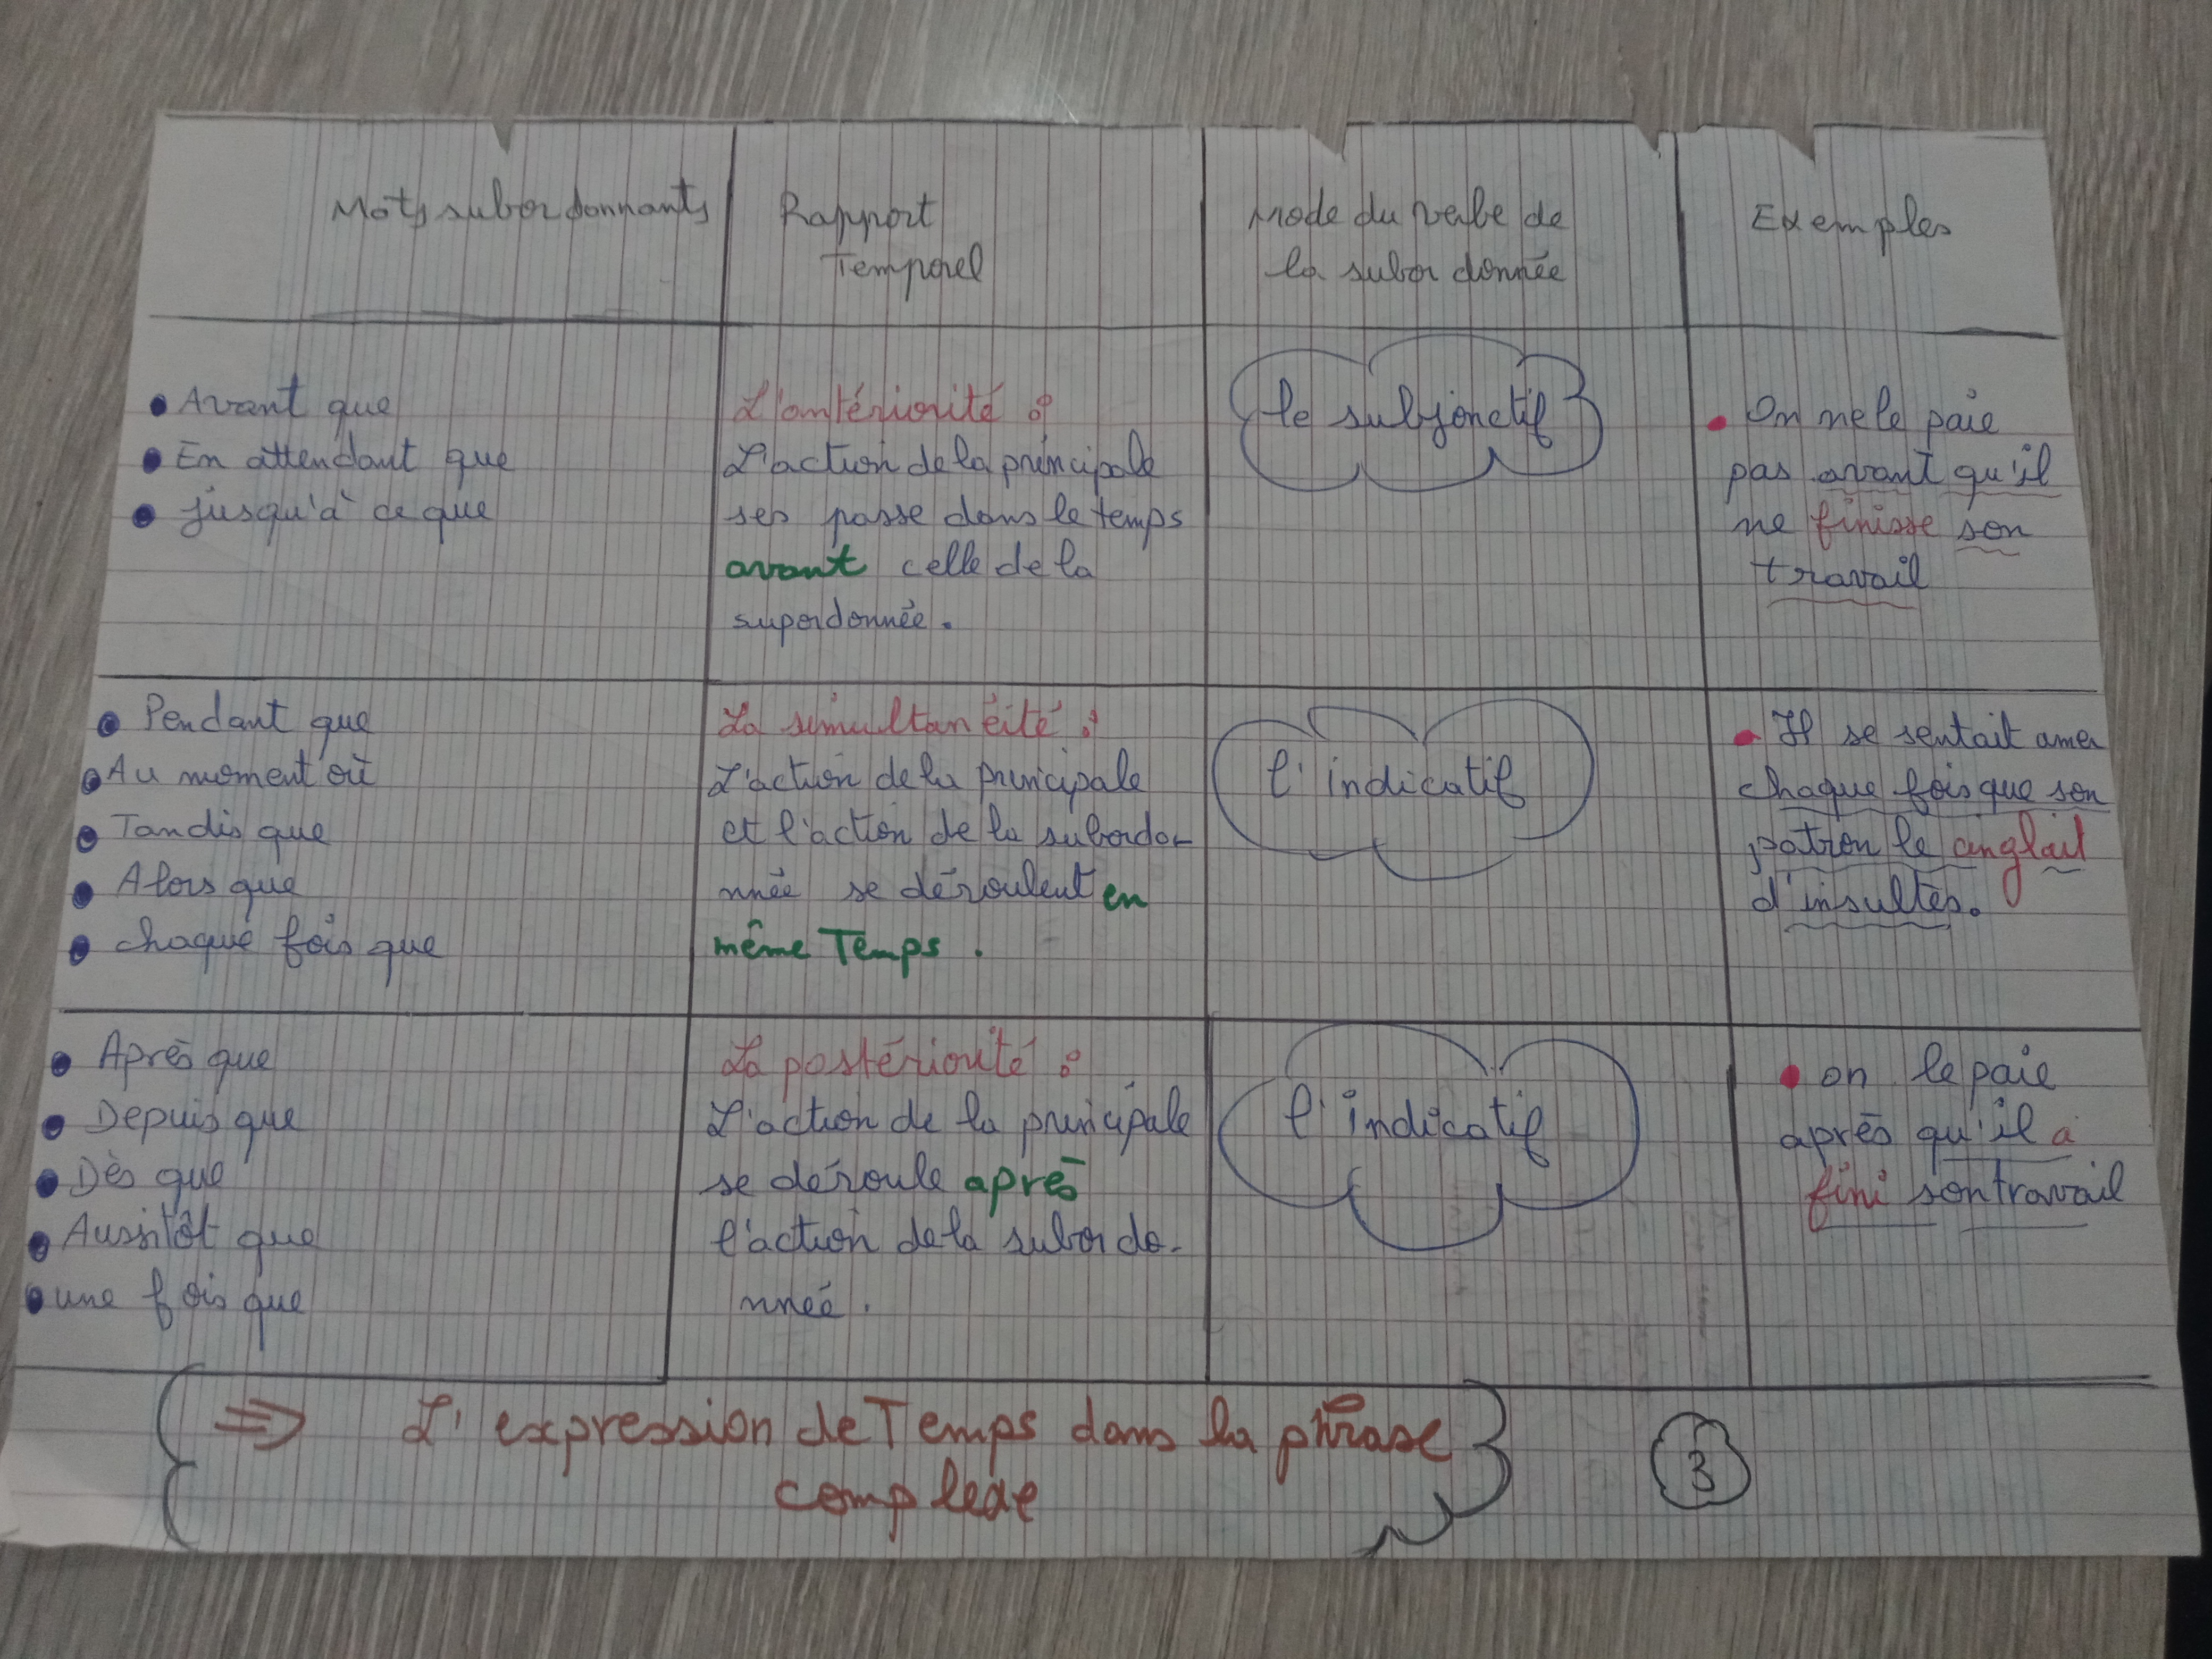 Mots subordonnants
Rapport
Temporel
Mode du verbe de
la subordonnée
Exemples
• Avant que
• En attendant que
• jusqu'à ce que
L'antériorité :
L'action de la principale
ses passe dans le temps
avant celle de la
superdonnée.
le subjonctif
• On ne le paie
pas avant qu'il
ne finisse son
travail
• Pendant que
• Au moment où
• Tandis que
• Alors que
• chaque fois que
La simultanéité :
L'action de la principale
et l'action de la subordo-
nnée se déroulent en
même Temps.
l'indicatif
• Il se sentait amer
chaque fois que son
patron le cinglait
d'insultes.
• Après que
• Depuis que
• Dès que
• Aussitôt que
• une fois que
La postériorité :
L'action de la principale
se déroule après
l'action de la subordo-
nnée.
l'indicatif
• on le paie
après qu'il a
fini son travail
⇒ L'expression de Temps dans la phrase
complexe
3